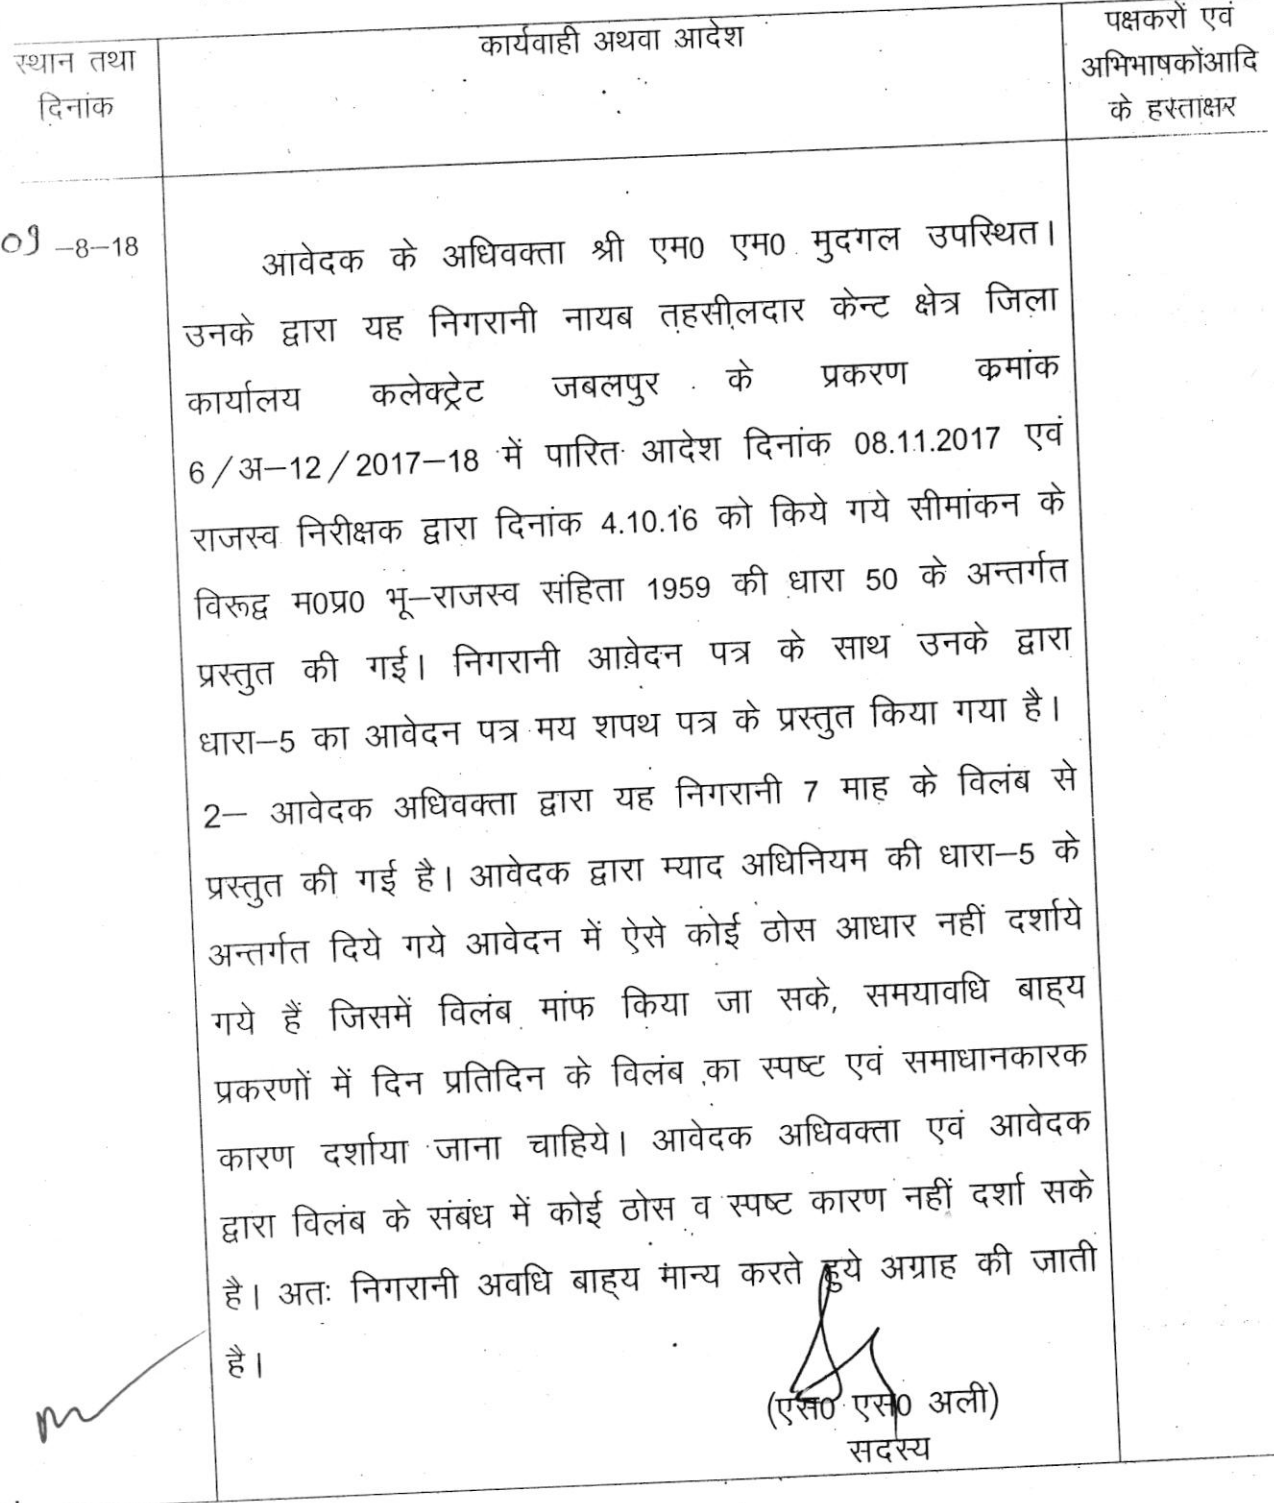 स्थान तथा
दिनांक
कार्यवाही अथवा आदेश
पक्षकारों एवं
अभिभाषकोंआदि
के हस्ताक्षर
09 –8–18
आवेदक के अधिवक्ता श्री एम0 एम0 मुदगल उपस्थित।
उनके द्वारा यह निगरानी नायब तहसीलदार केन्ट क्षेत्र जिला
कार्यालय कलेक्ट्रेट जबलपुर के प्रकरण कमांक
6/अ–12/2017–18 में पारित आदेश दिनांक 08.11.2017 एवं
राजस्व निरीक्षक द्वारा दिनांक 4.10.16 को किये गये सीमांकन के
विरूद्व म0प्र0 भू–राजस्व संहिता 1959 की धारा 50 के अन्तर्गत
प्रस्तुत की गई। निगरानी आवेदन पत्र के साथ उनके द्वारा
धारा–5 का आवेदन पत्र मय शपथ पत्र के प्रस्तुत किया गया है।
2– आवेदक अधिवक्ता द्वारा यह निगरानी 7 माह के विलंब से
प्रस्तुत की गई है। आवेदक द्वारा म्याद अधिनियम की धारा–5 के
अन्तर्गत दिये गये आवेदन में ऐसे कोई ठोस आधार नहीं दर्शाये
गये हैं जिसमें विलंब मांफ किया जा सके, समयावधि बाह्य
प्रकरणों में दिन प्रतिदिन के विलंब का स्पष्ट एवं समाधानकारक
कारण दर्शाया जाना चाहिये। आवेदक अधिवक्ता एवं आवेदक
द्वारा विलंब के संबंध में कोई ठोस व स्पष्ट कारण नहीं दर्शा सके
है। अतः निगरानी अवधि बाह्य मान्य करते हुये अग्राह की जाती
है।
(एस0 एस0 अली)
सदस्य